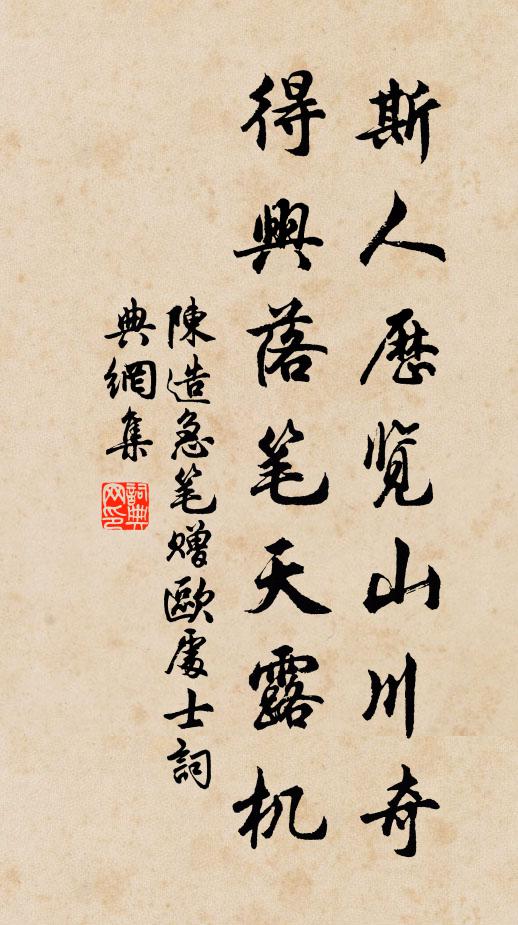 斯人歷览山川奇
得興落笔天露机
陳造急笔赠歐處士詞
典網集
詞典网印